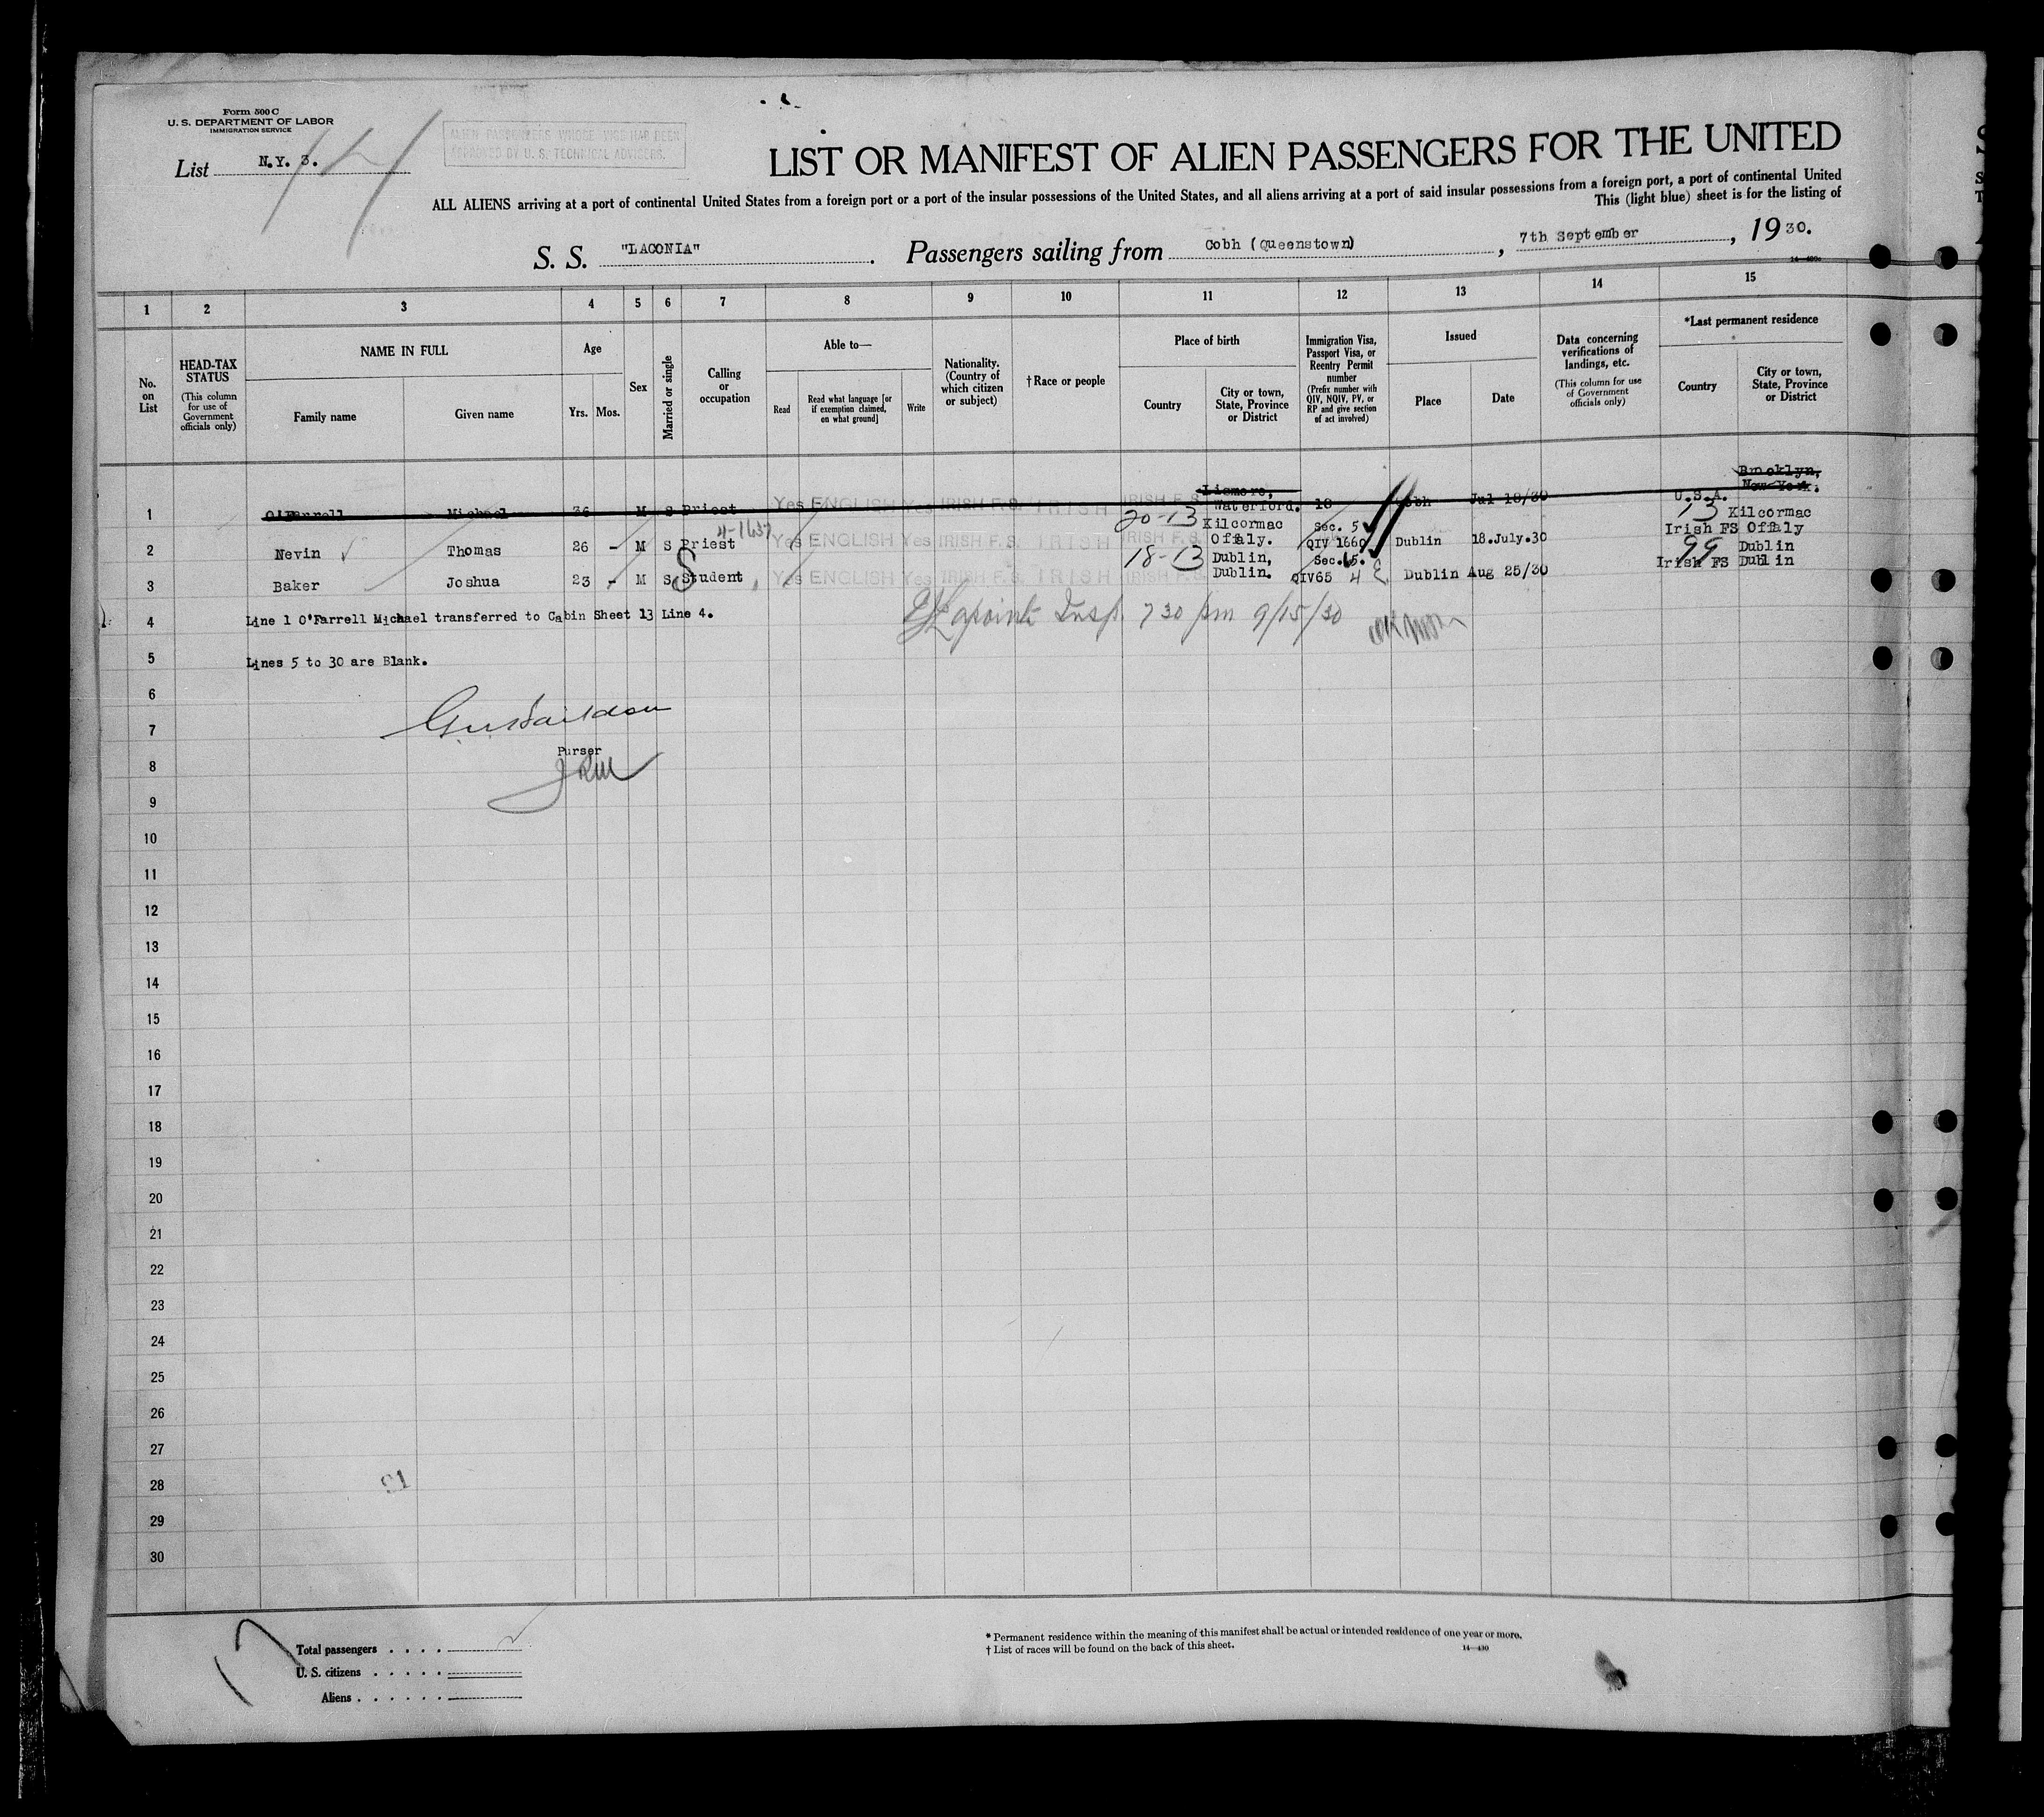 Form 500 C
U. S. DEPARTMENT OF LABOR
IMMIGRATION SERVICE
List N.Y. 3.
ALIEN PASSENGERS WHOSE VISE HAD BEEN
APPROVED BY U. S. TECHNICAL ADVISERS.
LIST OR MANIFEST OF ALIEN PASSENGERS FOR THE UNITED
ALL ALIENS arriving at a port of continental United States from a foreign port or a port of the insular possessions of the United States, and all aliens arriving at a port of said insular possessions from a foreign port, a port of continental United
This (light blue) sheet is for the listing of
S. S. "LACONIA". Passengers sailing from Cobh (Queenstown), 7th September, 1930.
14—430
1 2 3 4 5 6 7 8 9 10 11 12 13 14 15
No. on List
HEAD-TAX STATUS (This column for use of Government officials only)
NAME IN FULL
Family name Given name
Age
Yrs. Mos.
Sex
Married or single
Calling or occupation
Able to—
Read Read what language [or if exemption claimed, on what ground] Write
Nationality. (Country of which citizen or subject)
†Race or people
Place of birth
Country City or town, State, Province or District
Immigration Visa, Passport Visa, or Reentry Permit number (Prefix number with QIV, NQIV, PV, or RP and give section of act involved)
Issued
Place Date
Data concerning verifications of landings, etc. (This column for use of Government officials only)
*Last permanent residence
Country City or town, State, Province or District
Lismore, Brooklyn,
1 O'Farrell Michael 36 M S Priest Yes ENGLISH Yes IRISH F.S. IRISH IRISH F.S. Waterford. 18 Cobh Jul 18/30 U.S.A. New York.
4-1637 20-13 Kilcormac Sec. 5 13 Kilcormac
2 Nevin Thomas 26 - M S Priest Yes ENGLISH Yes IRISH F.S. IRISH IRISH F.S. Offaly. QIV 1660 Dublin 18.July.30 Irish FS Offaly
18-13 Dublin, Sec. 5. 99 Dublin
3 Baker Joshua 23 - M S Student Yes ENGLISH Yes IRISH F.S. IRISH IRISH F.S. Dublin. QIV65 4 Dublin Aug 25/30 Irish FS Dublin
4 Line 1 O'Farrell Michael transferred to Cabin Sheet 13 Line 4.
Insp. 7 30 pm 9/15/30
5 Lines 5 to 30 are Blank.
6
7
Purser
8
9
10
11
12
13
14
15
16
17
18
19
20
21
22
23
24
25
26
27
28 91
29
30
Total passengers . . . .
U. S. citizens . . . . .
Aliens . . . . . .
* Permanent residence within the meaning of this manifest shall be actual or intended residence of one year or more.
† List of races will be found on the back of this sheet.
14—430